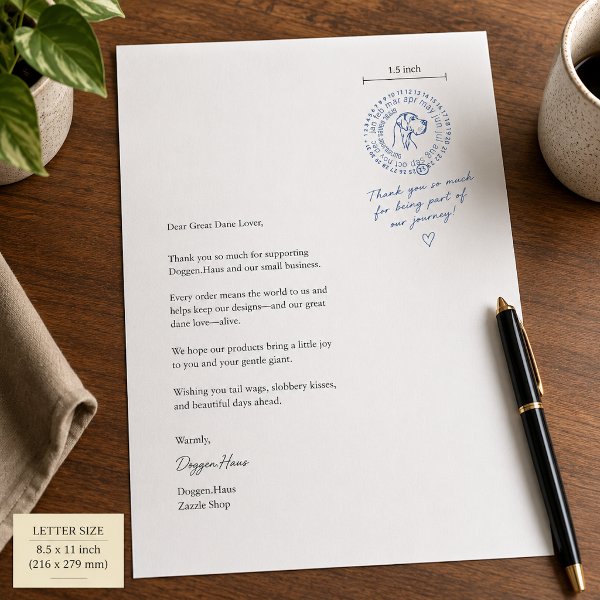 1.5 inch
1 2 3 4 5 6 7 8 9 10 11 12 13 14 15 16 17 18 19 20 21 22 23 24 25 26 27 28 29 30 31
jan feb mar apr may jun jul aug sep oct nov dec
Thank you so much
for being part of
our journey!
Dear Great Dane Lover,
Thank you so much for supporting
Doggen.Haus and our small business.
Every order means the world to us and
helps keep our designs—and our great
dane love—alive.
We hope our products bring a little joy
to you and your gentle giant.
Wishing you tail wags, slobbery kisses,
and beautiful days ahead.
Warmly,
Doggen.Haus
Doggen.Haus
Zazzle Shop
LETTER SIZE
8.5 x 11 inch
(216 x 279 mm)